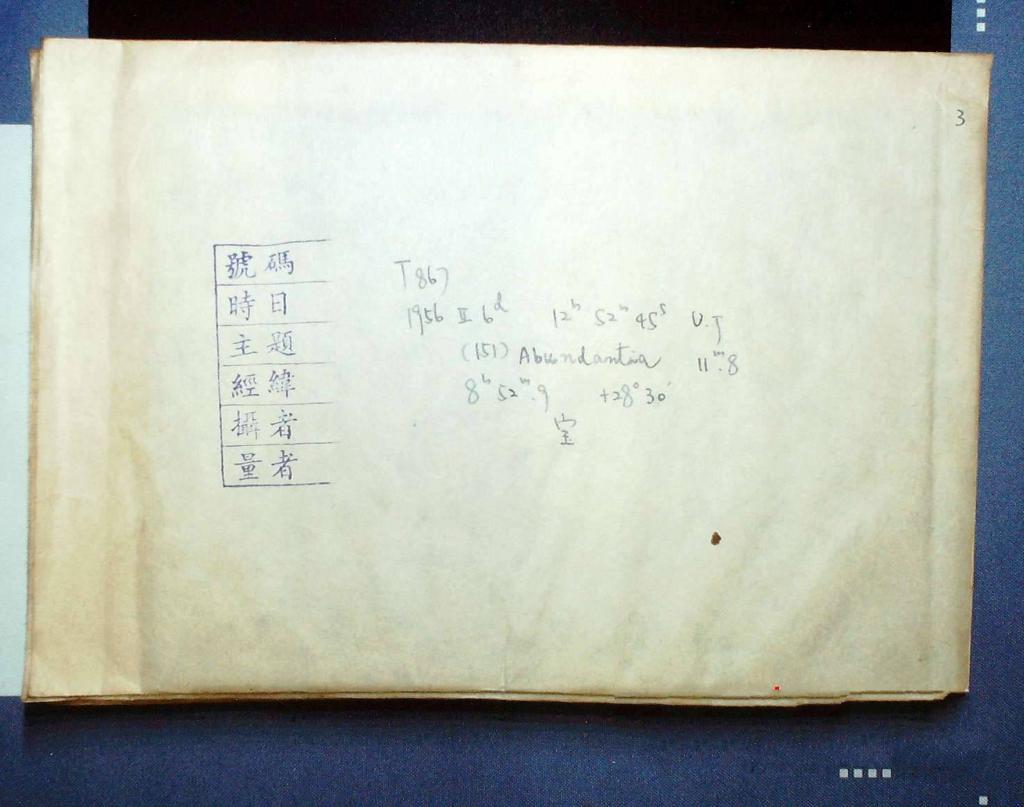 3
號碼 T867
時日 1956 II 6ᵈ 12ʰ 52ᵐ 45ˢ U.T
主題 (151) Abundantia 11ᵐ.8
經緯 8ʰ 52ᵐ.9 +28° 30'
攝者 宝
量者